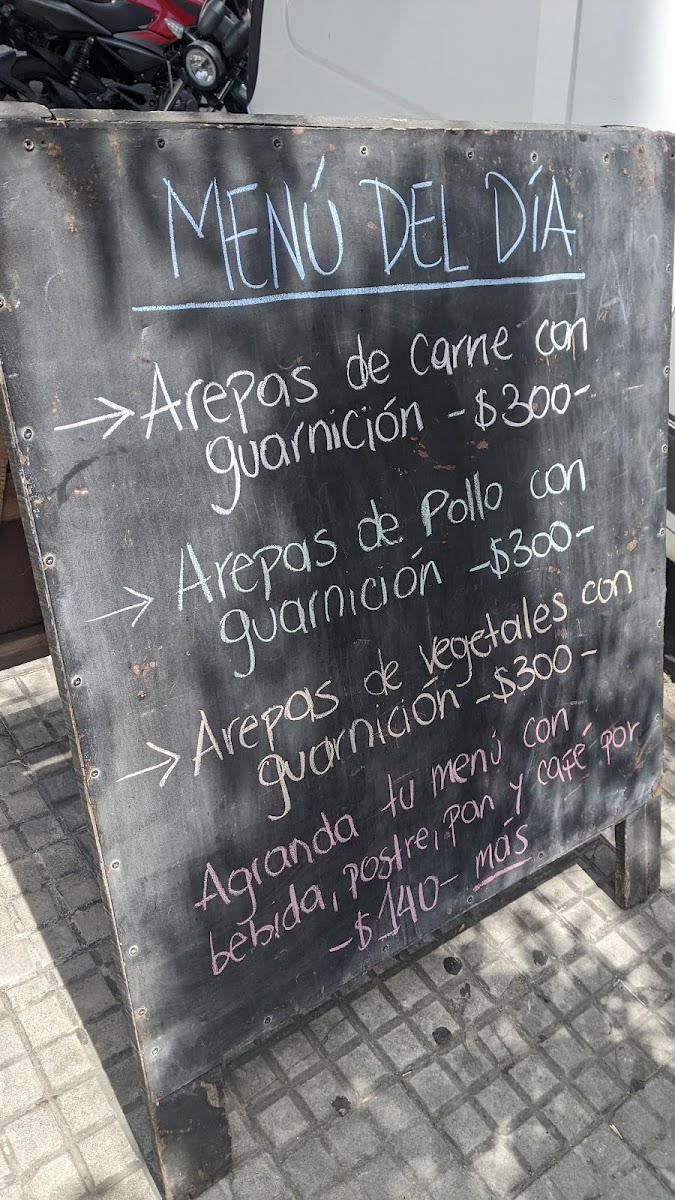 MENÚ DEL DÍA
→ Arepas de carne con
guarnición -$300-
→ Arepas de Pollo con
guarnición -$300-
→ Arepas de vegetales con
guarnición -$300-
Agranda tu menú con
bebida, postre, pan y café por
-$140- más